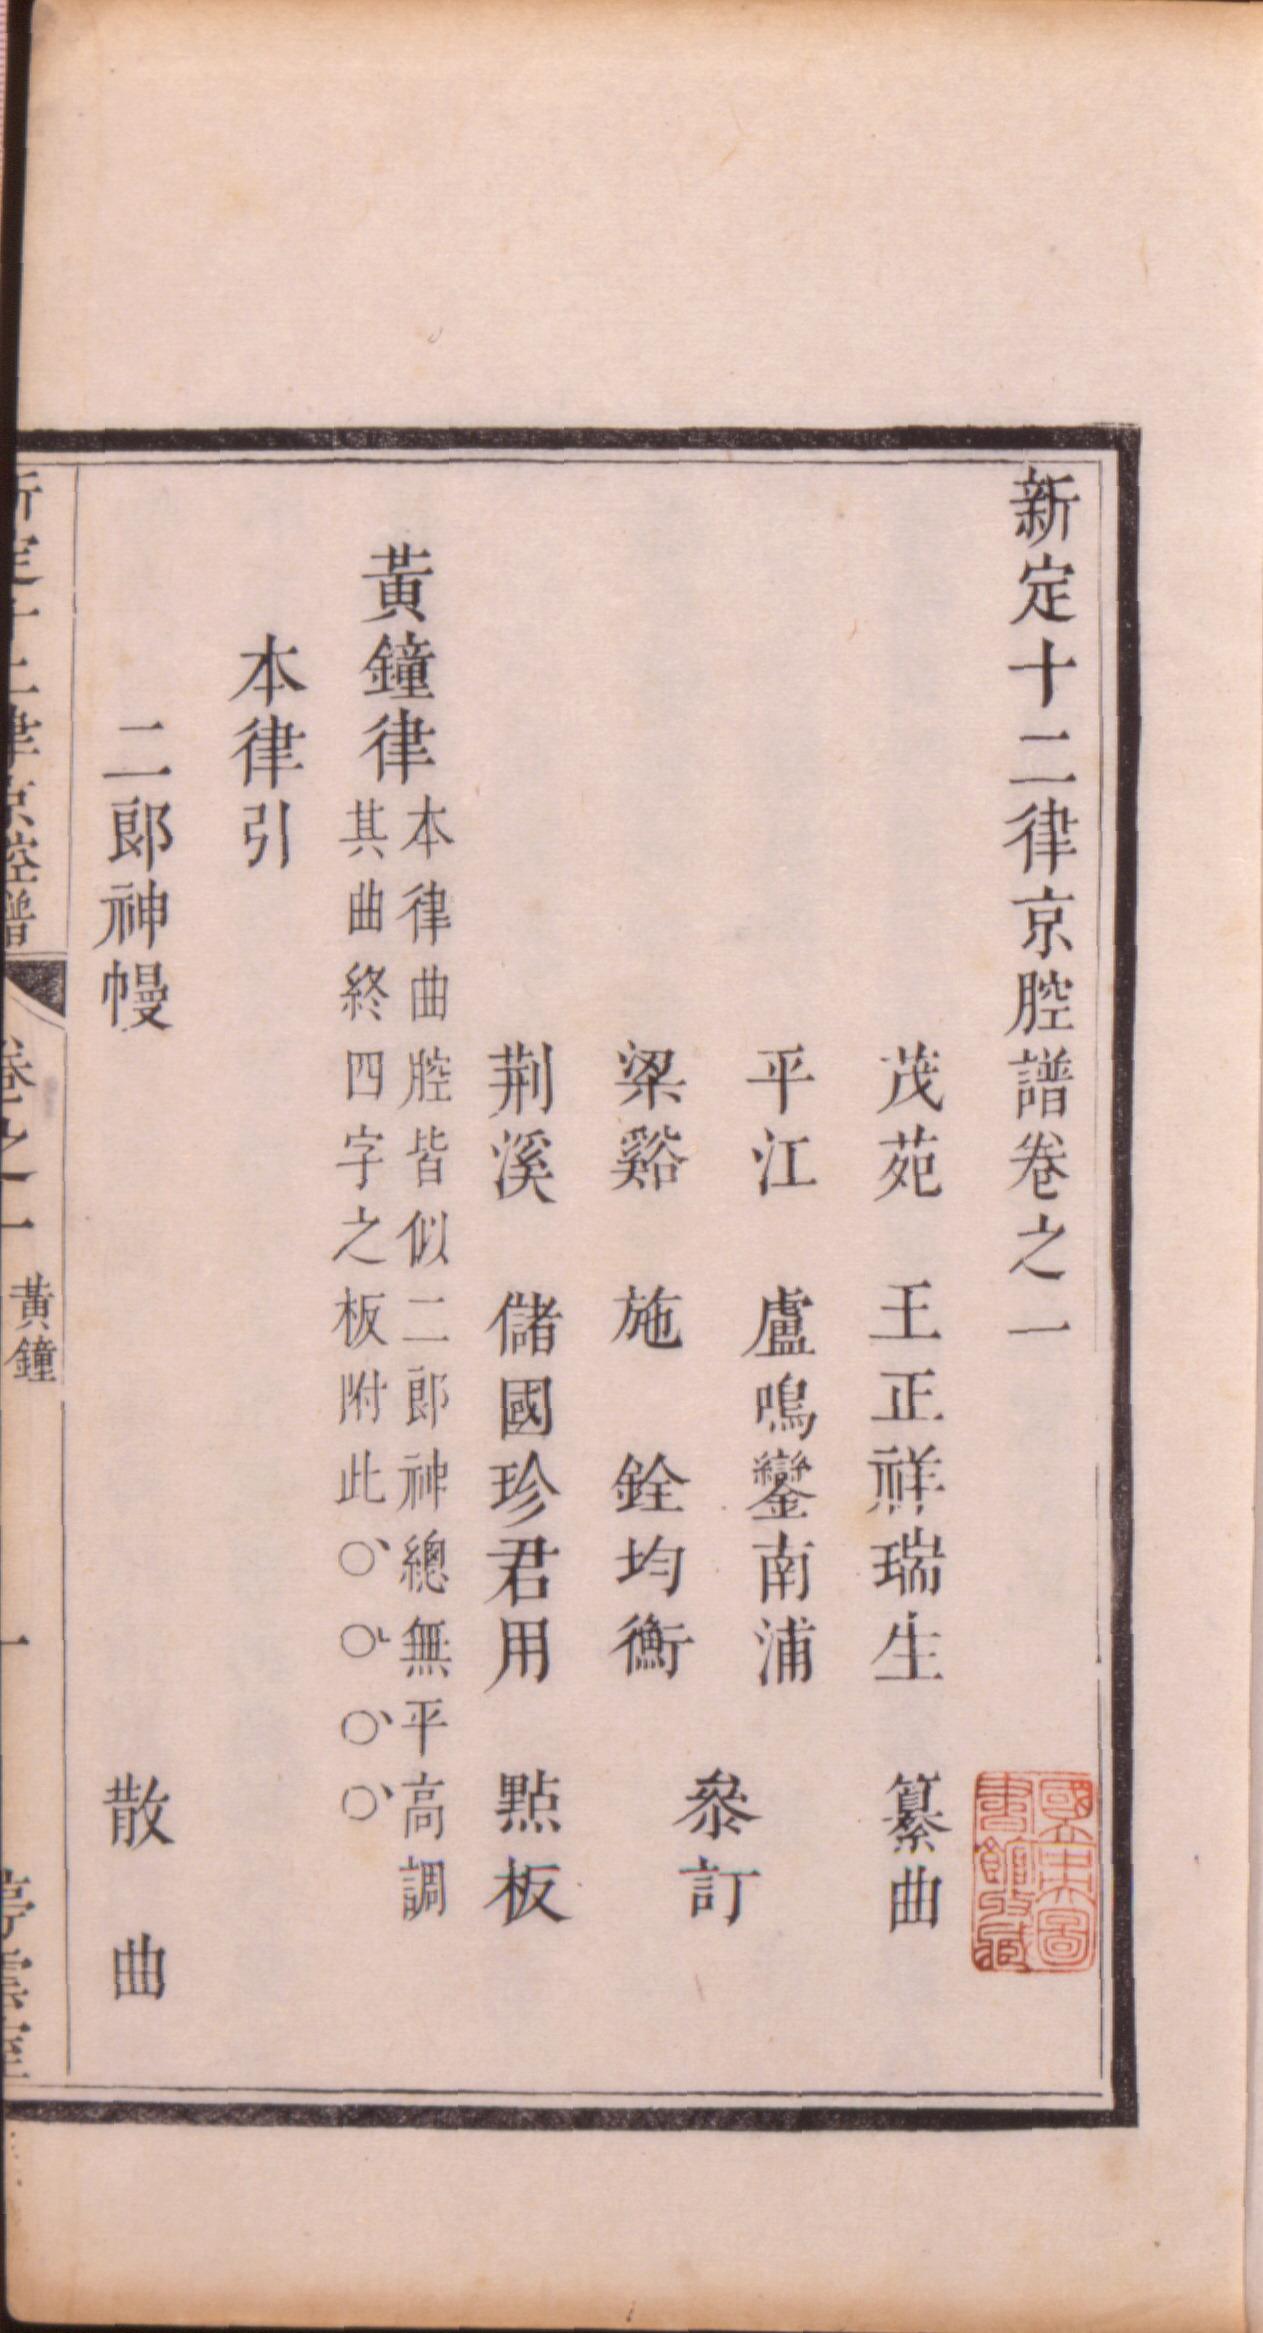 新定十二律京腔譜卷之一
茂苑 王正祥瑞生 纂曲
平江 盧鳴鑾南浦
梁谿 施 銓均衡
參訂
荆溪 儲國珍君用 點板
黃鐘律
本律曲腔皆似二郎神總無平高調
其曲終四字之板附此〇、〇、〇、〇、
本律引
二郎神幔 散 曲
新定十二律京腔譜
卷之一 黃鐘
一
國立中央圖
書館收藏